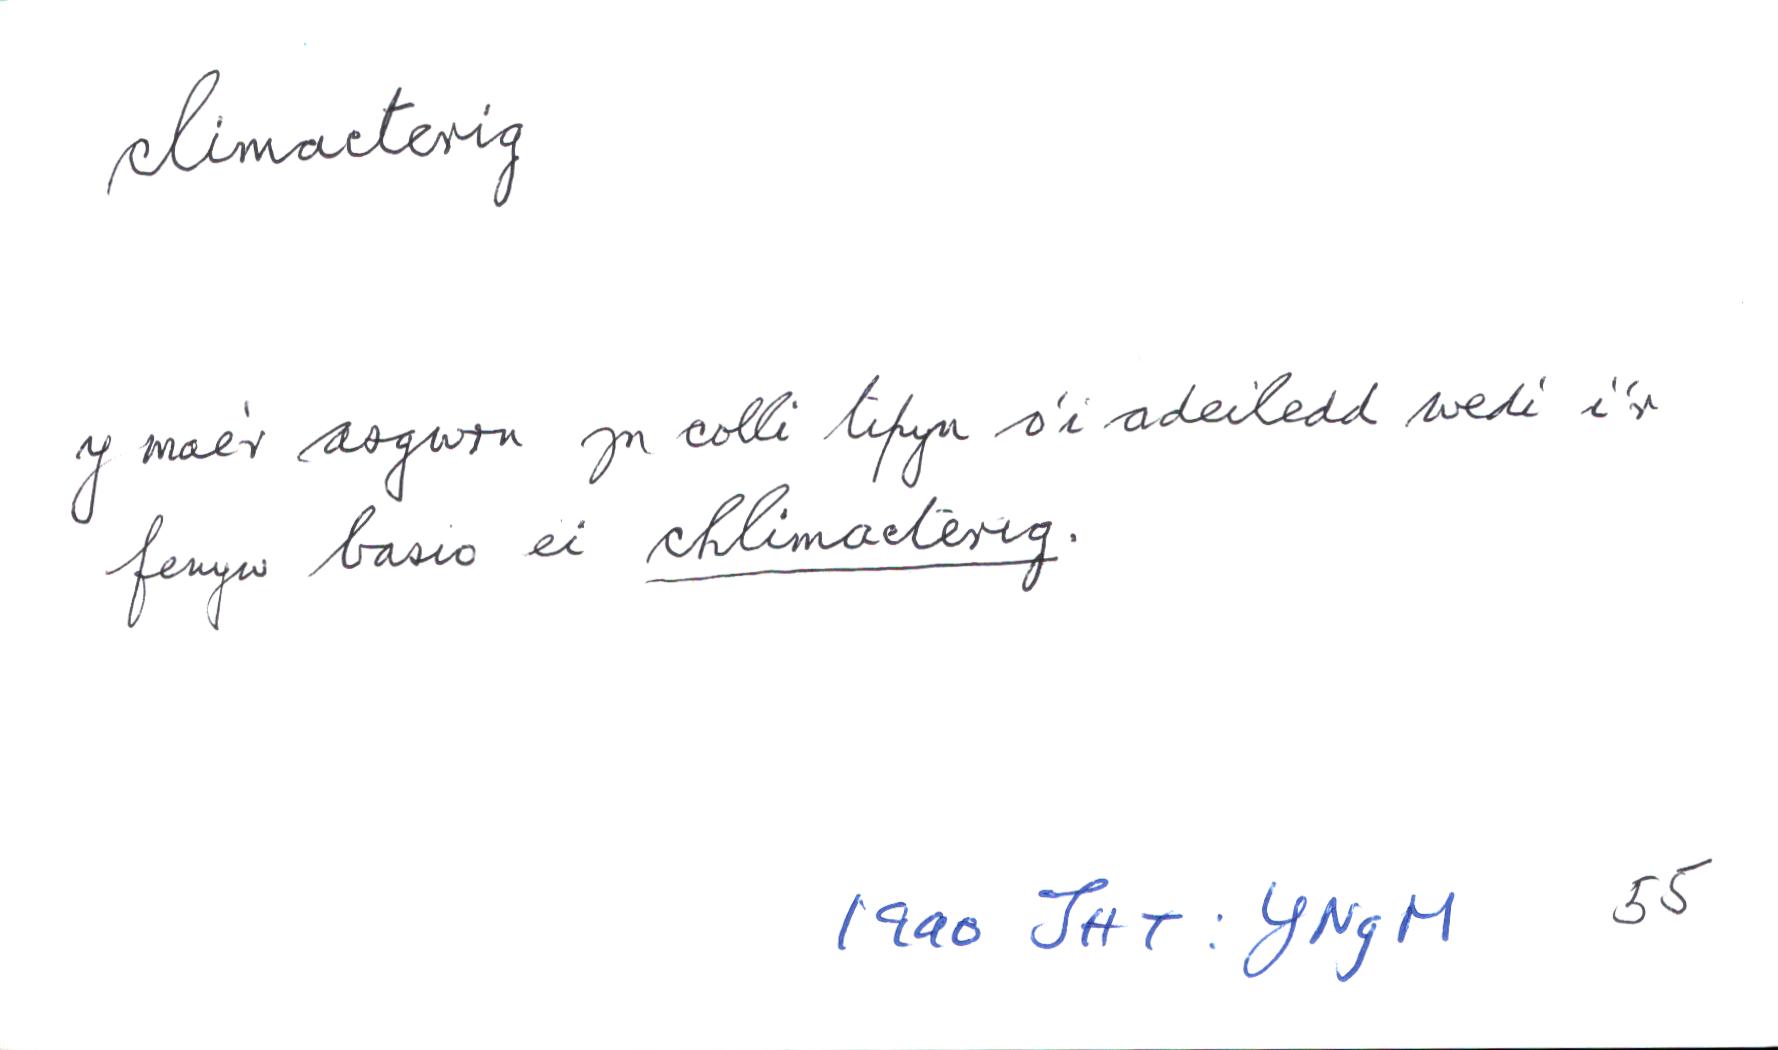 climacterig
y mae'r asgwrn yn colli tipyn o'i adeiledd wedi i'r
fenyw basio ei chlimacterig.
1990 JHT: YNgM 55